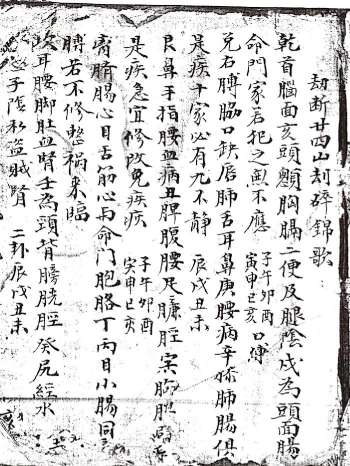 劫断廿四山刦碎錦歌
乾首腦面亥頭顖胸膈二便及腿陰戌為頭面腸
命門家若犯之無不應 子午卯酉 寅申巳亥 口
兌右膊脇口缺唇肺舌耳鼻庚腰病辛膝肺腸俱
是疾十家必有九不静 辰戌丑未
艮鼻手指腰血病丑脾腹腰足臁脛寅胸胆
是疾急宜修改免疾疾 子午卯酉 寅申巳亥
腸心目舌筋心両命門胞胳丁丙目小腸同
膊若不修整禍来臨
坎耳腰脚肚血腎壬為頸背膀胱脛癸尻經水
子陰私盜賊腎 二卦辰戌丑未